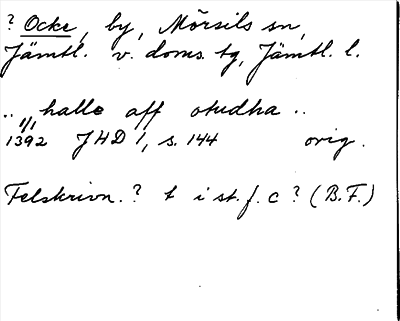 ? Ocke, by, Mörsils sn,
Jämtl. v. doms. tg, Jämtl. l.
.. halle aff otudha ..
1/1 1392 JHD 1, s. 144 orig.
Felskrivn. ? t i st. f. c ? (B.F.)